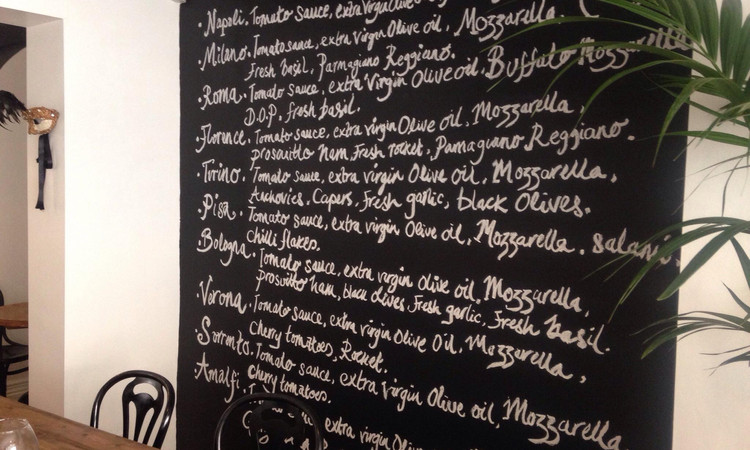 · Napoli. Tomato sauce, extra virgin Olive oil, Mozzarella
· Milano. Tomato sauce, extra virgin Olive oil,
Fresh basil, Parmagiano Reggiano.
· Roma. Tomato sauce, extra virgin Olive oil, Buffalo Mozzarella
D.O.P. fresh basil.
· Florence. Tomato sauce, extra virgin Olive oil, Mozzarella,
Prosuitto Ham, Fresh rocket, Pamagiano Reggiano.
· Turino. Tomato sauce, extra virgin Olive oil, Mozzarella,
Anchovies, Capers, Fresh garlic, black Olives.
· Pisa. Tomato sauce, extra virgin Olive oil, Mozzarella. salami.
Chilli flakes.
· Bologna. Tomato sauce, extra virgin olive oil, Mozzarella,
Prosuitto ham, black olives, Fresh garlic, Fresh basil.
· Verona. Tomato sauce, extra virgin Olive Oil, Mozzarella,
Cherry tomatoes, Rocket.
· Sorrento. Tomato sauce, extra virgin Olive oil, Mozzarella
Cherry tomatoes.
· Amalfi. extra virgin Olive